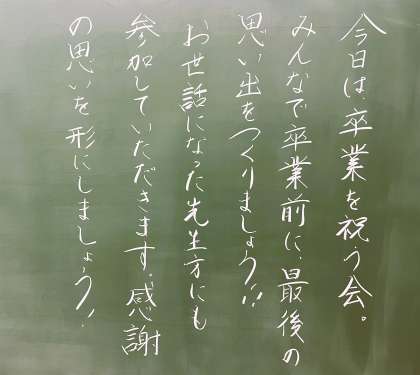 今日は、卒業を祝う会。
みんなで卒業前に、最後の
思い出をつくりましょう!!
お世話になった先生方にも
参加していただきます。感謝
の思いを形にしましょう!